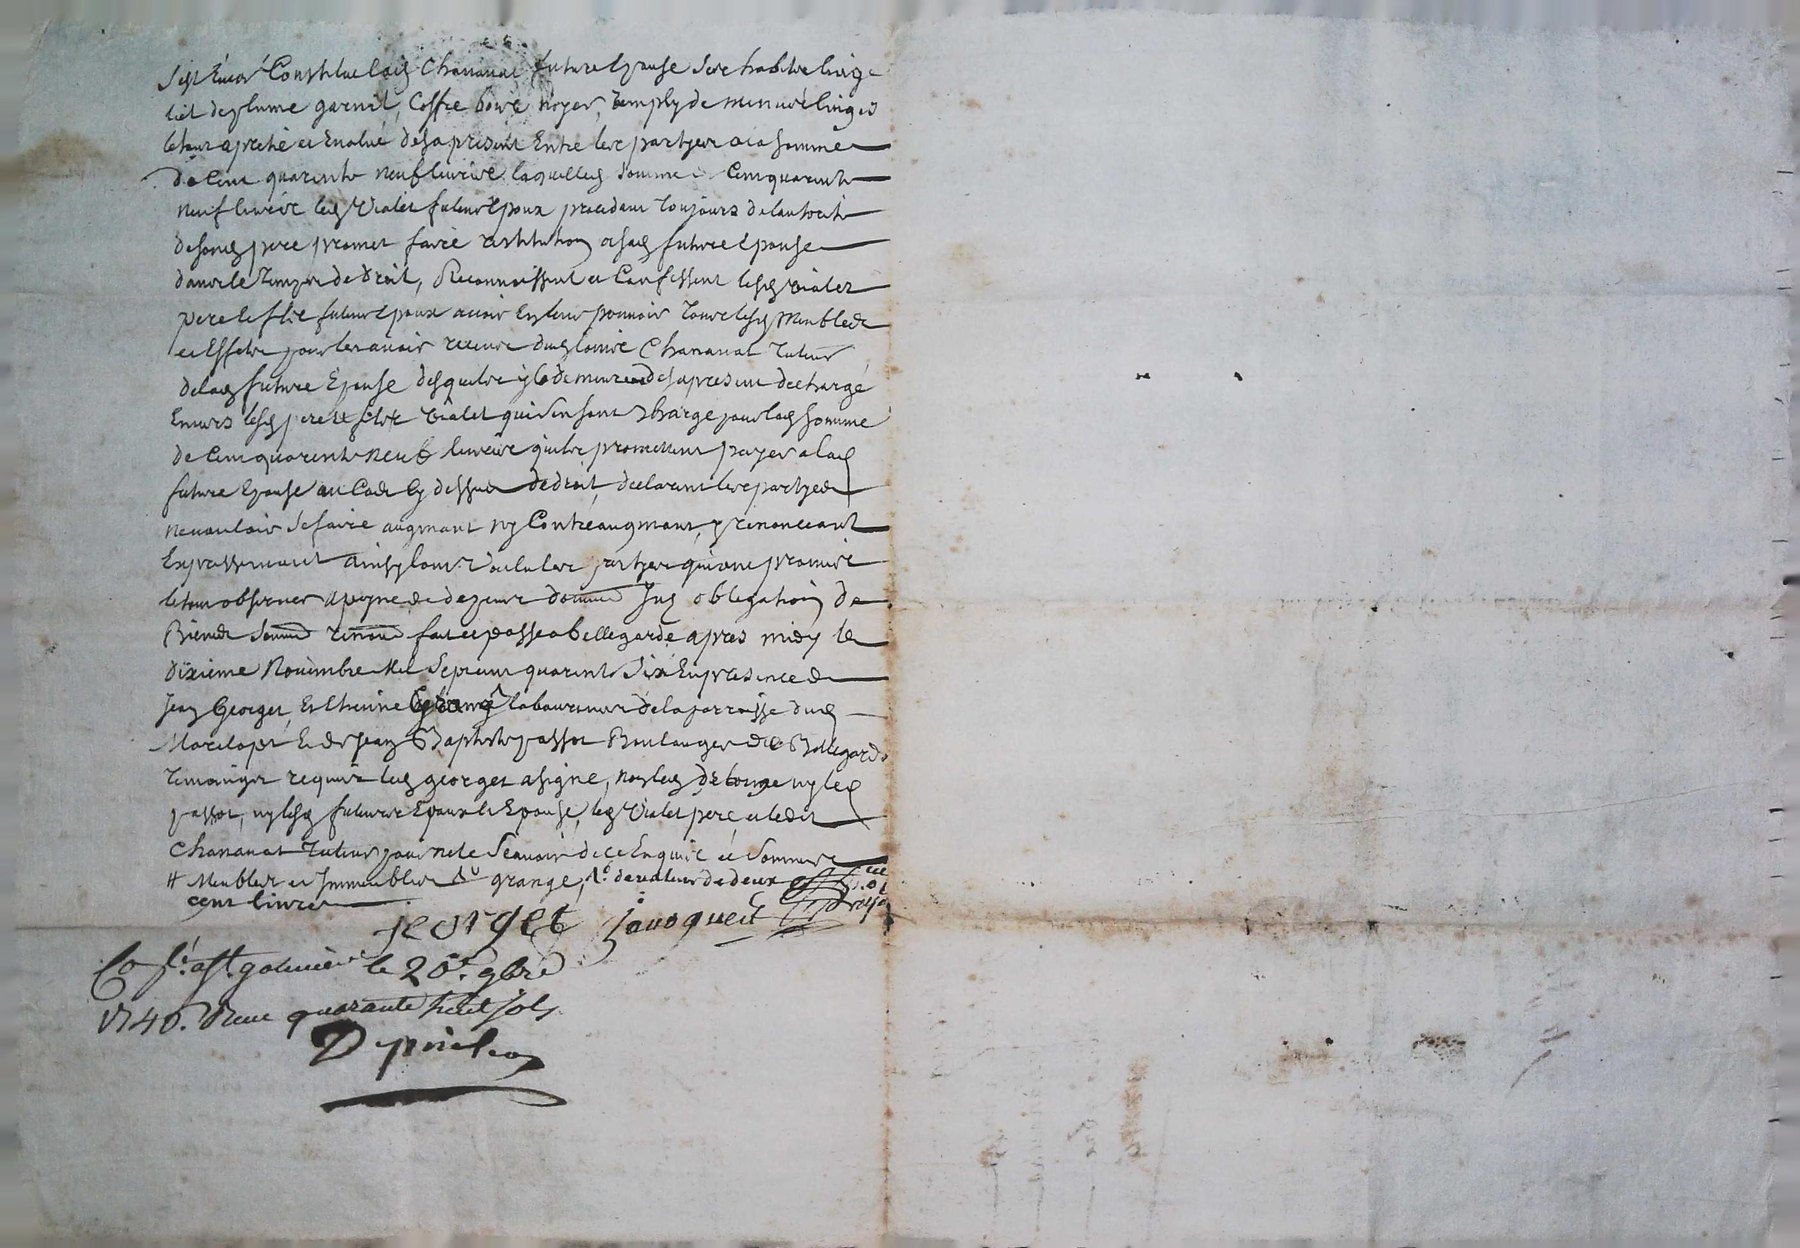 s'est Encor Constitué lad Chananat future Epouse ses habits linge
lict de plume garnit, Coffre bois noyer, remply de menus linges
le tout apretié et Evalué desa present Entre les partyes a la somme
de Cent quarente neuf livres laquelle somme Cent quarente
neuf livres led Vialet futur Epoux procedant toujours de lautorité
de sond pere promet faire restitution a sad future Epouse
dans le temps de droit, Reconnoissent et Confessent lesd vialet
pere et fils futur Epoux avoir En leur pouvoir tous lesd Meubles
et Effets pour les avoir receus dud Chananat tuteur
de lad future Epouse desquels il demeure desapresent decharge
Envers lesd pere et fils Vialet qui s'en sont Charge pour lad somme
de Cent quarente neuf livres quils promettent payer a lad
future Epouse au Cas Cy dessus de droit, declarant les partyes
ne vouloir se faire augmant ny Contreaugmant, y renonceant
Expressement ainsy lont voulu les partyes qui ont promis
le tout observer a peyne de depens domma Jnd obligation de
Biens soumi renon fait et passe a bellegarde apres midy le
dixieme Novembre Mil Sept cent quarente Six En presence de
Jean Georget, Estienne laboureurs de la parroisse dud
Marclopt et de Jean Baptiste passot Boulanger de Bellegarde
temoings requis led georget a signe, non led ny led
passot, ny lesd futurs Epoux et Epouse, led Vialet pere, et ledit
Chananat tuteur pour ne le Scavoir de ce Enquis et Sommes
# Meubles et Jmmeubles grange, de valeur de deux
cent livres
jeorget Jauoquent
le 20e 9bre
1746. Recu quarante huit sols
Depinelas